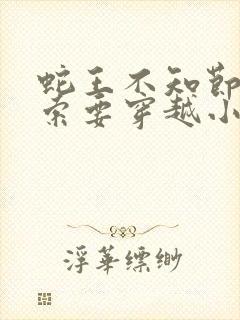 蛇王不知節
索要穿越小
浮華縹緲